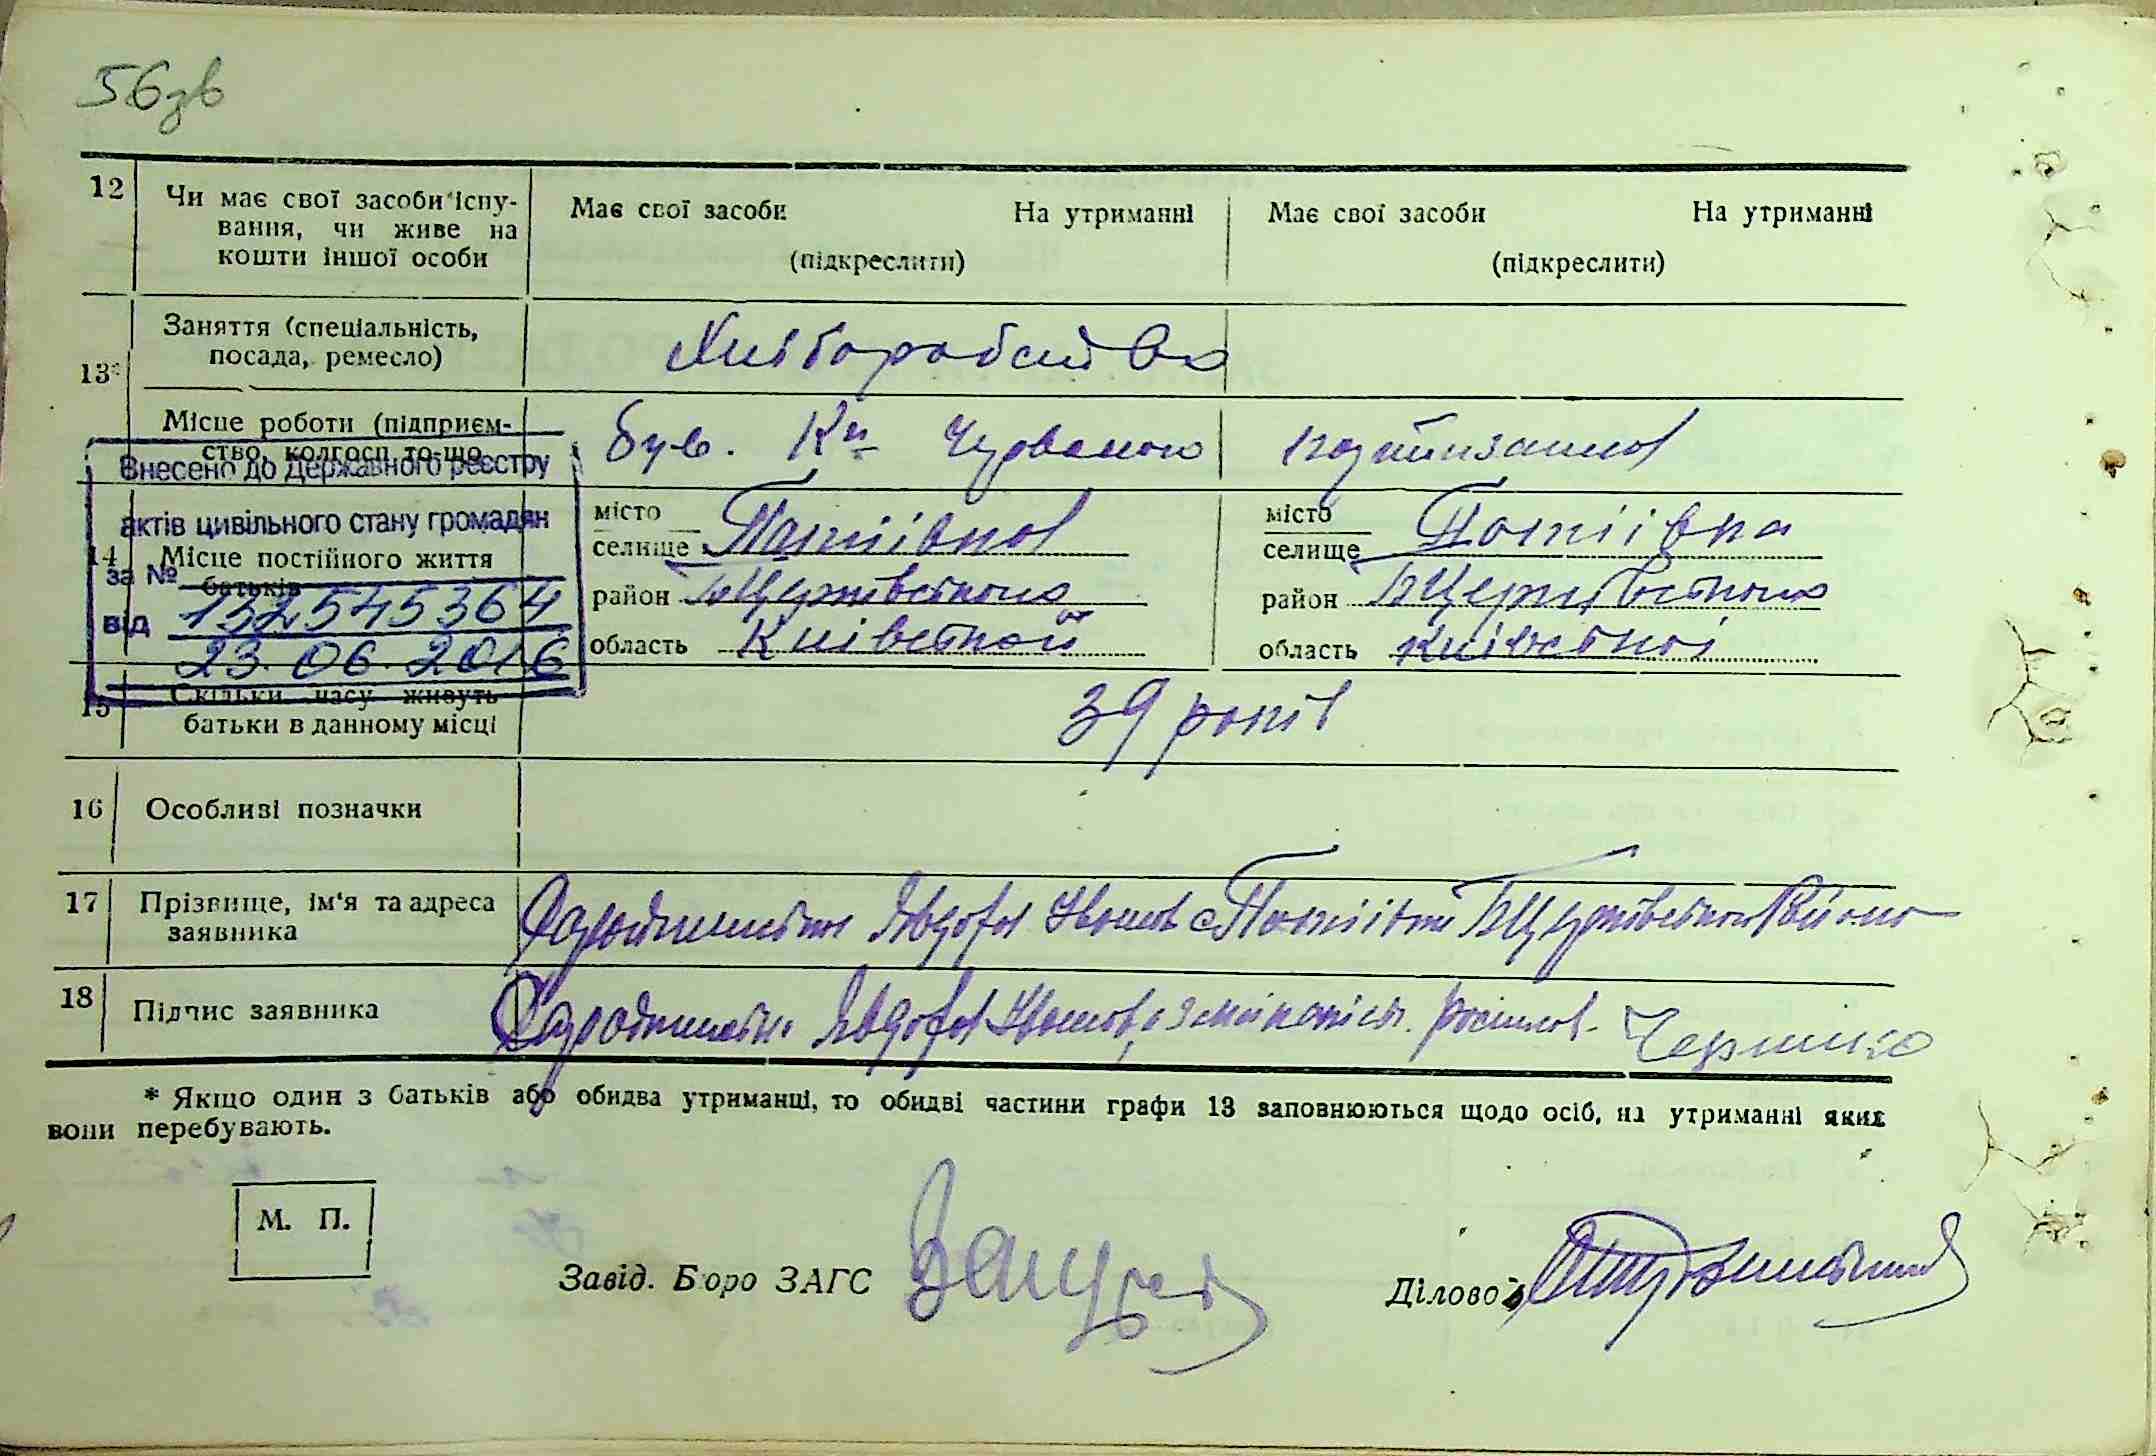 56зв
12
Чи має свої засоби існу-
вання, чи живе на
кошти іншої особи
Має свої засоби На утриманні
(підкреслити)
Має свої засоби На утриманні
(підкреслити)
13*
Заняття (спеціальність,
посада, ремесло)
Хліборобство
Місце роботи (підприєм-
ство, колгосп то-що
був.
Внесено до Державного реєстру
актів цивільного стану громадян
за № 132545364
від 23.06.2016
14
Місце постійного життя
батьків
місто
селище Потіївка
район БЦерківського
область Київської
місто
селище Потіївка
район БЦерківського
область Київської
15
Скільки часу живуть
батьки в данному місці
39 років
16
Особливі позначки
17
Прізвище, ім'я та адреса
заявника
Явдоха Іванов с Потіївки БЦерківського Району
18
Підпис заявника
Явдоха
* Якщо один з батьків або обидва утриманці, то обидві частини графи 13 заповнюються щодо осіб, на утриманні яких
вони перебувають.
М. П.
Завід. Бюро ЗАГС
Діловод